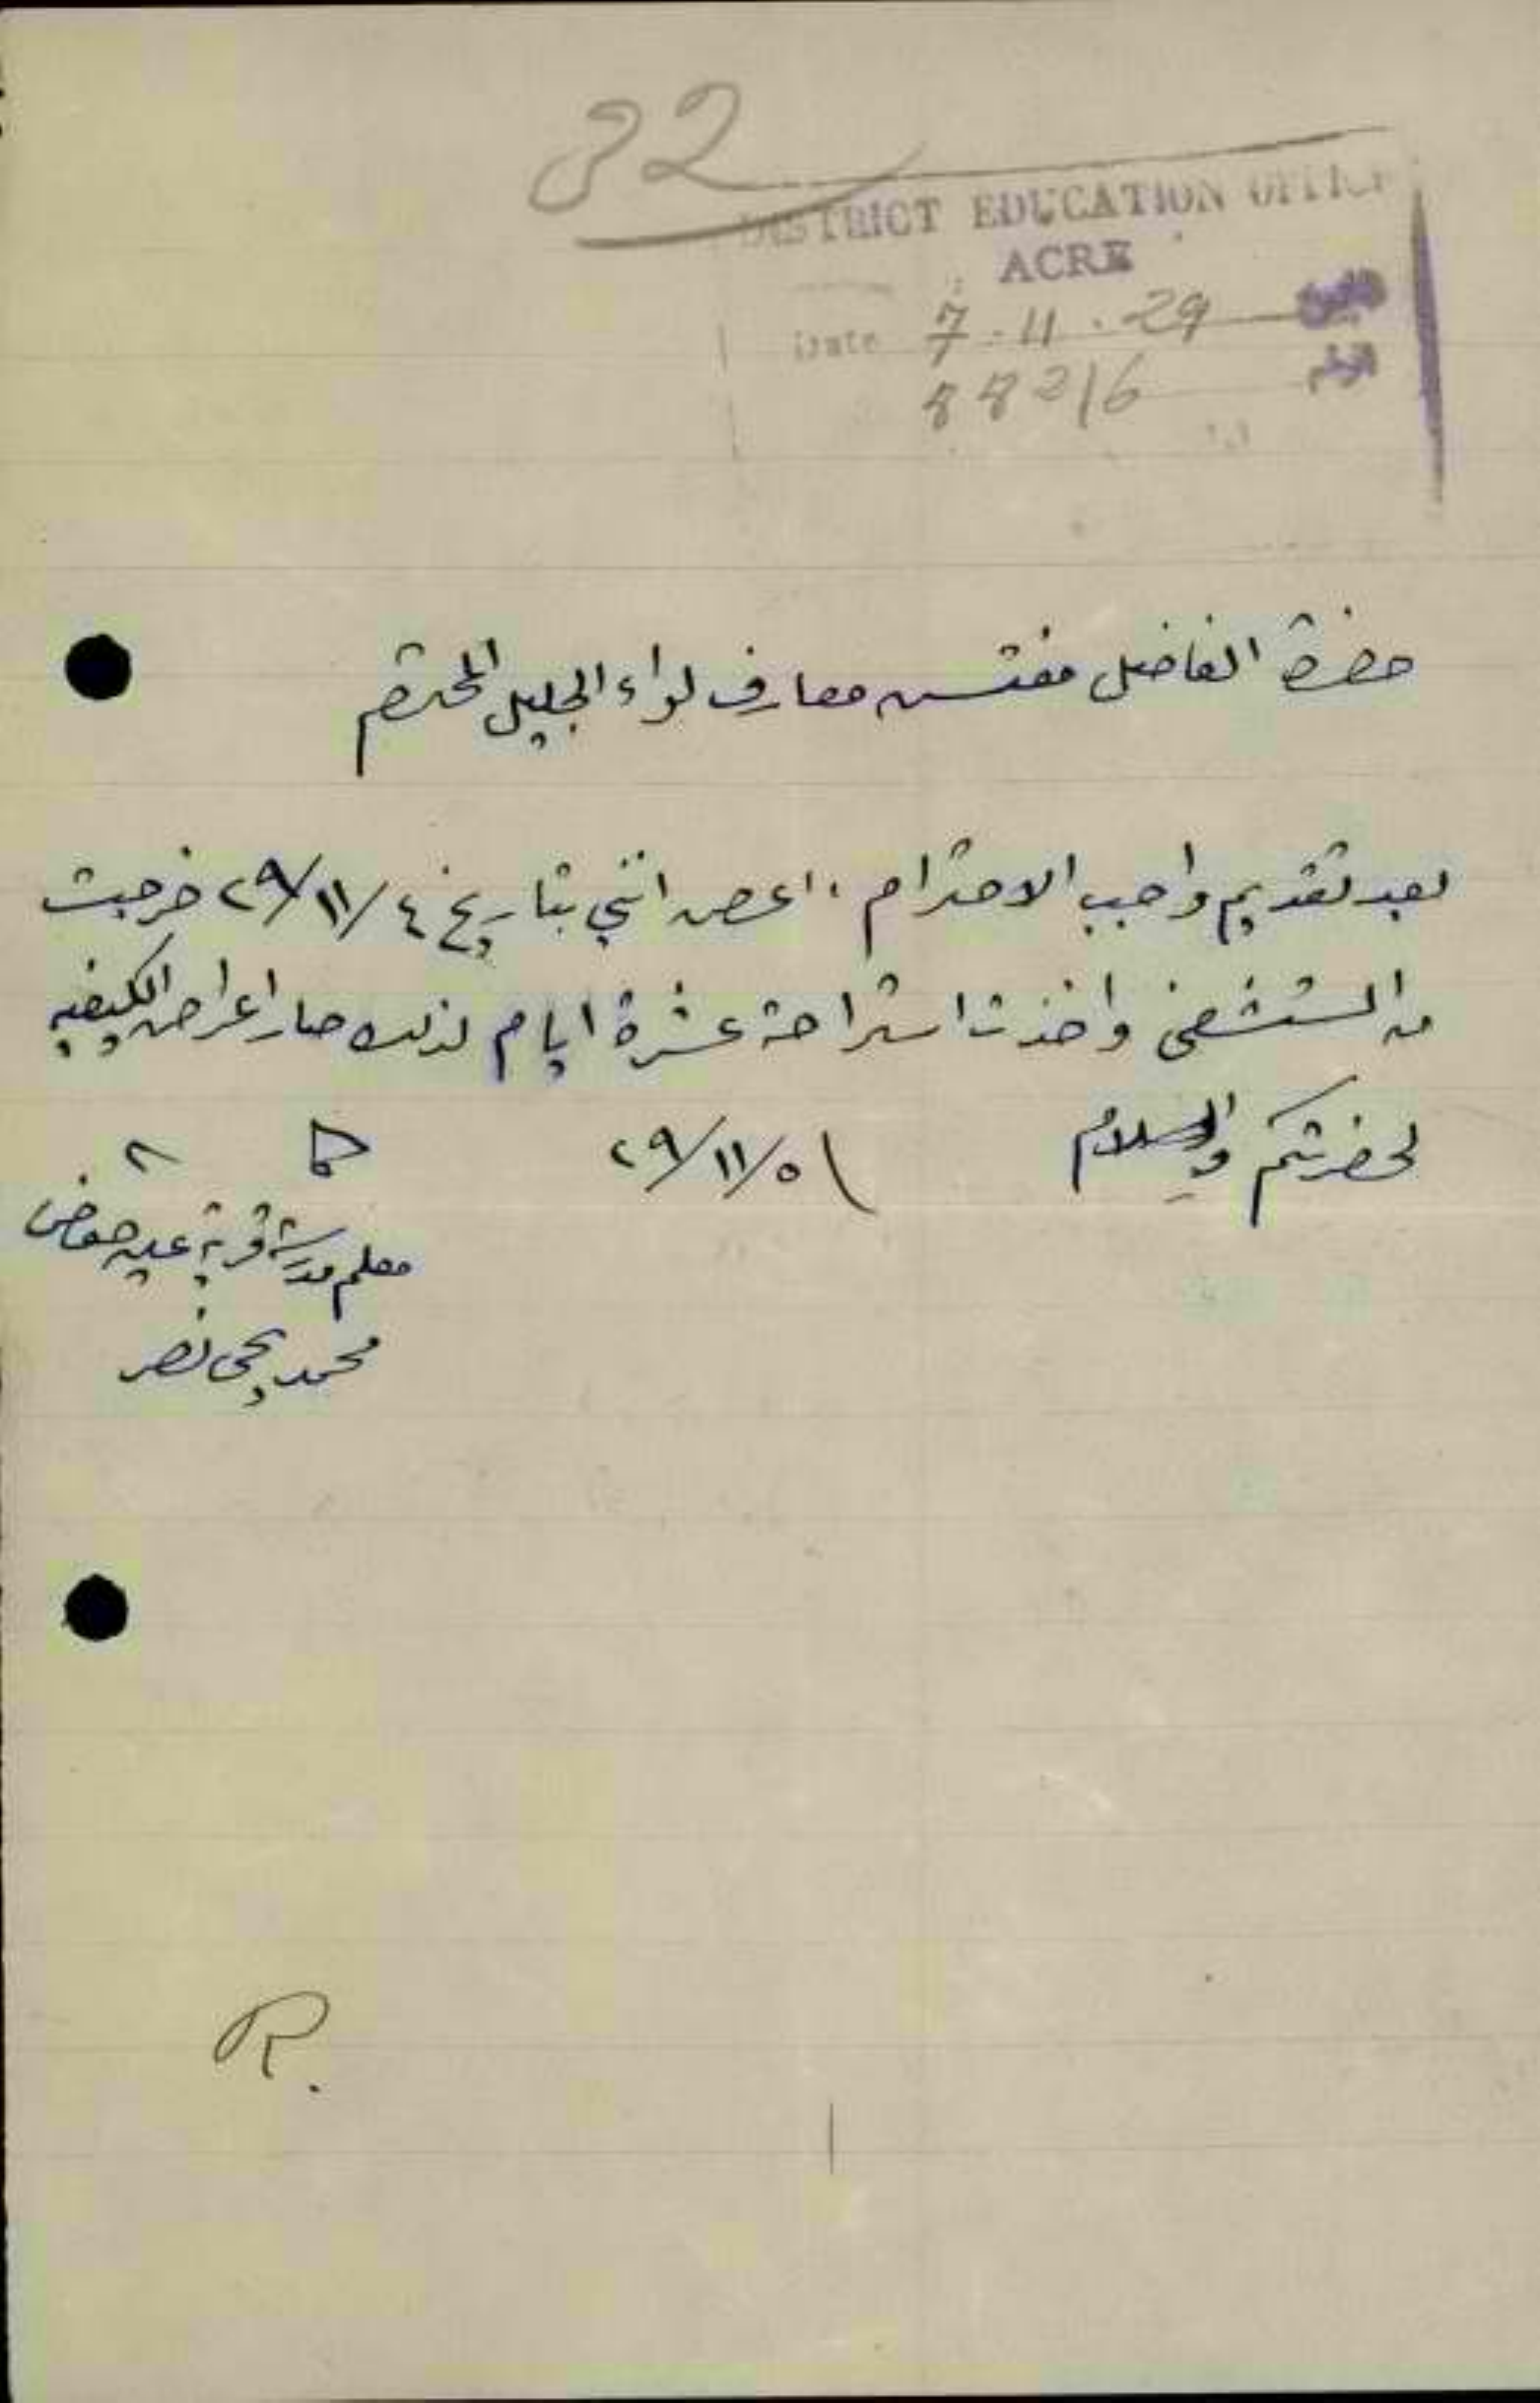 32
DISTRICT EDUCATION OFFICE
ACRE
Date 7.11.29 التاريخ
88216 الرقم
حضرة الفاضل مفتش معارف لواء الجليل المحترم
بعد تقديم واجب الاحترام، اعرض انني بتاريخ ٢٩/١١/٤ خرجت
من المستشفى واخذت استراحة عشرة ايام لذلك صار اعراض الكيفيه
لحضرتكم والسلام ٢٩/١١/٥
معلم مدرسة قرية عين حوض
محمد يحيى نصر
R.